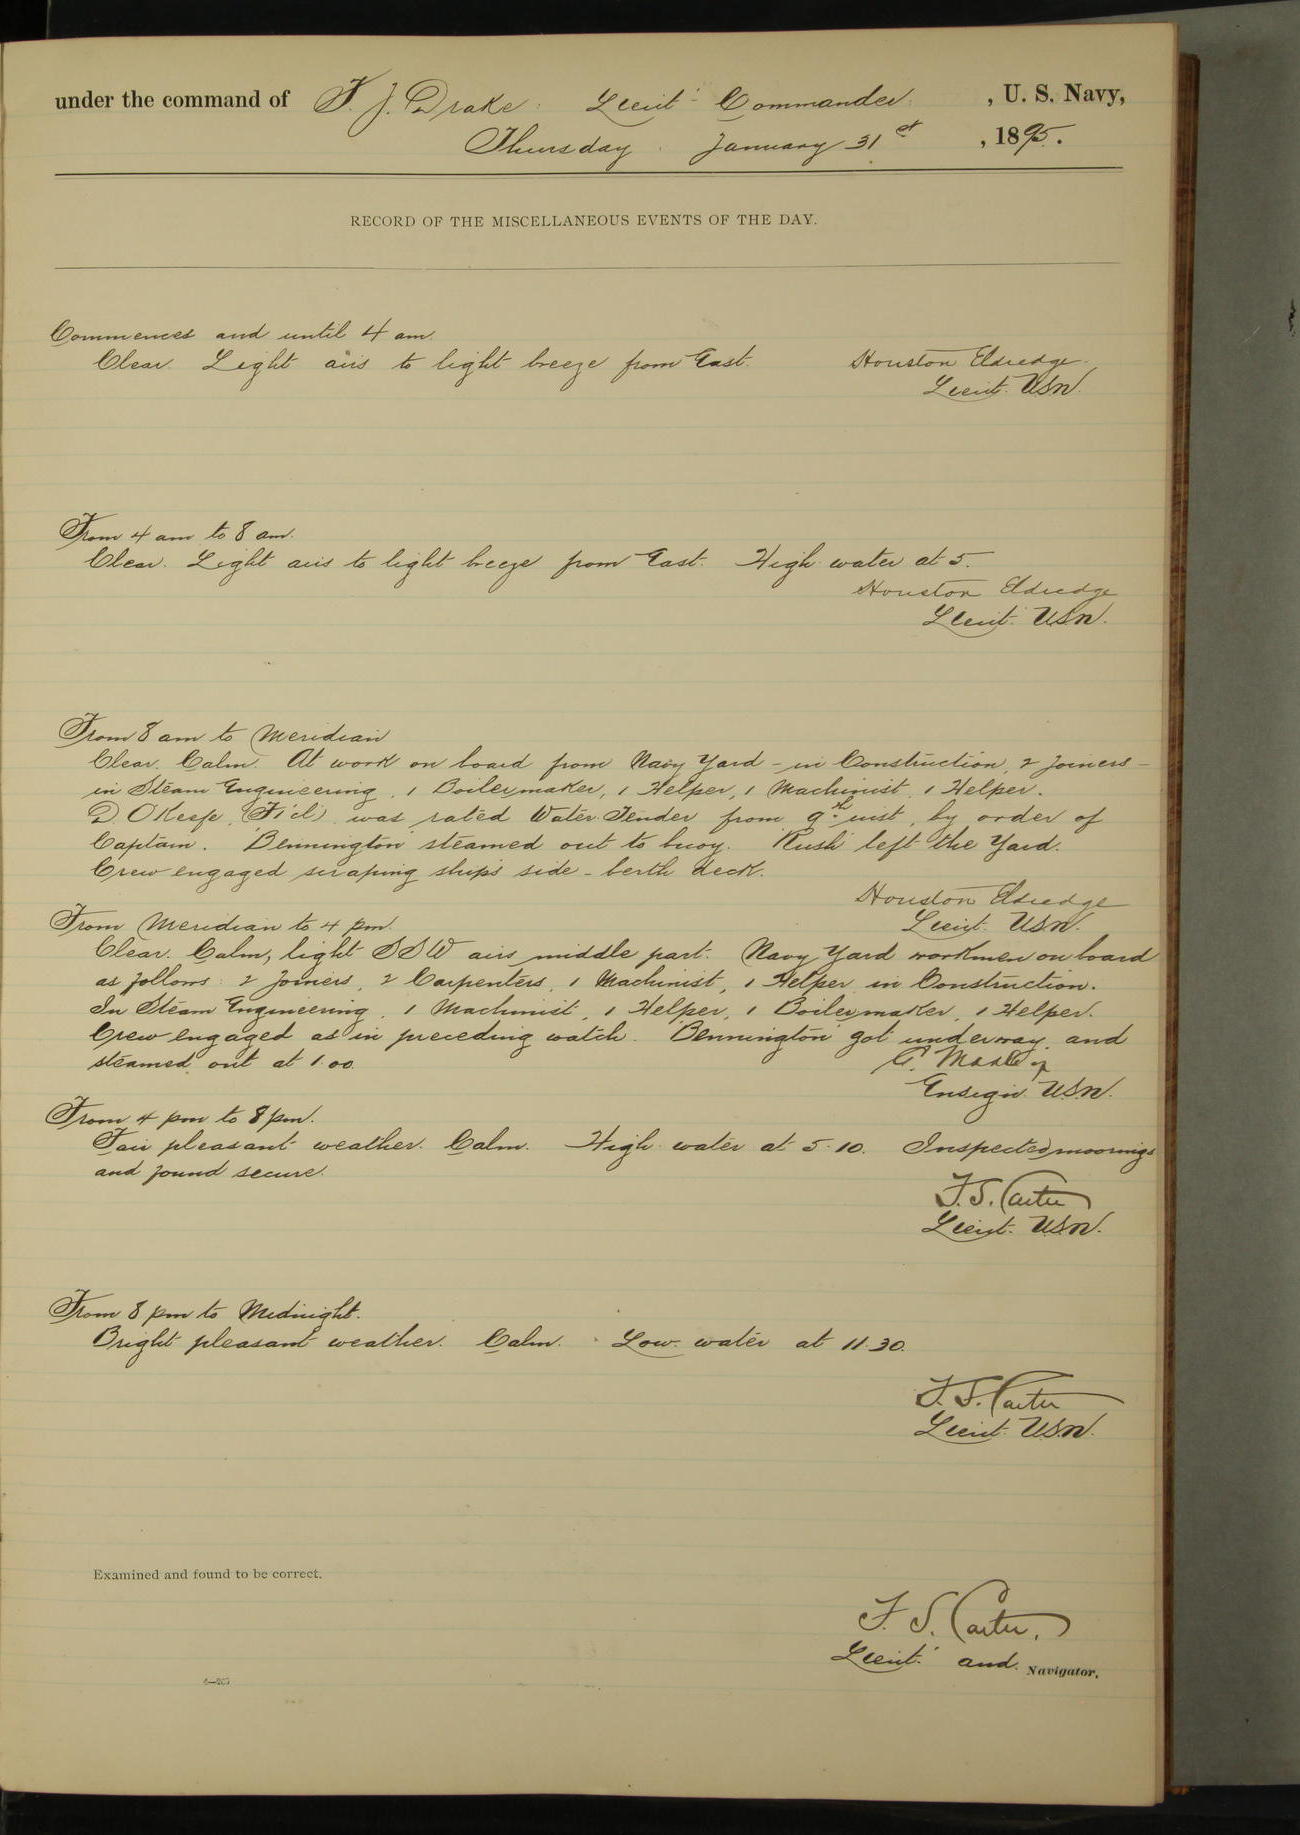 under the command of F. J. Drake. Lieut - Commander. , U. S. Navy,
Thursday. January 31st , 1895.
RECORD OF THE MISCELLANEOUS EVENTS OF THE DAY.
Commences and until 4 am.
Clear. Light airs to light breeze from East. Houston Eldredge.
Lieut. USN.
From 4 am to 8 am.
Clear. Light airs to light breeze from East. High water at 5.
Houston Eldredge
Lieut. USN.
From 8 am to Meridian
Clear. Calm. At work on board from Navy Yard - in Construction, 2 Joiners -
in Steam Engineering, 1 Boilermaker, 1 Helper, 1 Machinist, 1 Helper.
D. OKeefe, (F1cl) was rated Water Tender from 9th inst, by order of
Captain. "Bennington" steamed out to buoy. "Rush" left the Yard.
Crew engaged scraping ships side - berth deck.
Houston Eldredge
Lieut. USN.
From Meridian to 4 pm.
Clear. Calm, light SSW airs middle part. Navy Yard workmen on board
as follows: 2 Joiners, 2 Carpenters, 1 Machinist, 1 Helper in Construction.
In Steam Engineering, 1 Machinist, 1 Helper, 1 Boilermaker, 1 Helper.
Crew engaged as in preceding watch. "Bennington" got underway and
steamed out at 1.00.
Ensign USN.
From 4 pm to 8 pm.
Fair pleasant weather. Calm. High water at 5.10. Inspected moorings
and found secure.
F. S. Carter
Lieut. USN.
From 8 pm to Midnight.
Bright pleasant weather. Calm. Low water at 11.30.
F. S. Carter
Lieut. USN.
Examined and found to be correct.
F. S. Carter.
Lieut. and Navigator.